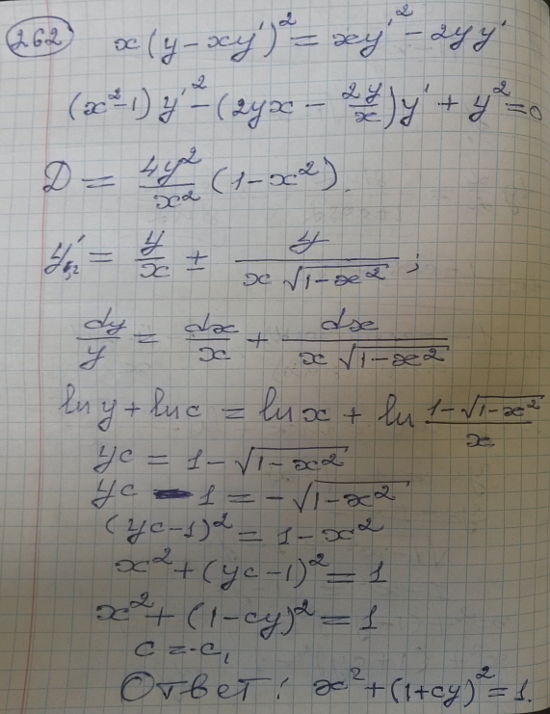 262 x(y-xy')² = xy'² - 2yy'
(x²-1)y'² - (2yx - 2y/x)y' + y² = 0
D = 4y²/x² (1-x²).
y'₁,₂ = y/x ± y/(x√(1-x²));
dy/y = dx/x + dx/(x√(1-x²))
ln y + ln c = ln x + ln (1-√(1-x²))/x
yc = 1-√(1-x²)
yc - 1 = -√(1-x²)
(yc-1)² = 1-x²
x² + (yc-1)² = 1
x² + (1-cy)² = 1
c = -c₁
Ответ: x² + (1+cy)² = 1.